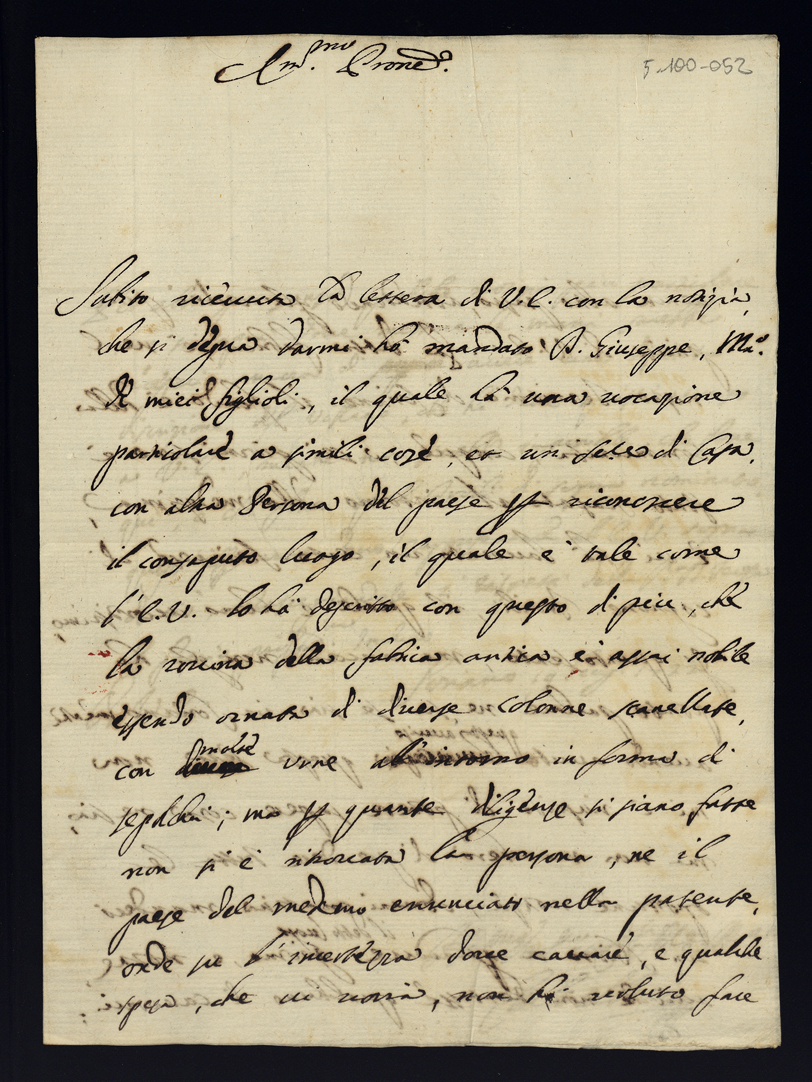 Am.mo Prone
5-100-052
Subito ricevuta la lettera di V.E. con la notizia,
che si degna darmi hò mandato D. Giuseppe, Mro.
de miei figlioli, il quale hà una vocazione
particolare a simili cose, et un di Casa,
con altra Persona del paese per riconoscere
il consaputo luogo, il quale è tale come
l'E.V. lo hà descritto con questo di piu, che
la rovina della fabrica antica è assai nobile
essendo ornata di diverse colonne scanellate,
con molte urne all'intorno in forma di
sepolchri; ma per quante diligenze si siano fatte
non si è ritrovata la persona, ne il
paese del medemo enunciato nella patente,
onde per l'incertezza dove cavare, e qualche
spesa, che vi voria, non hò voluto fare